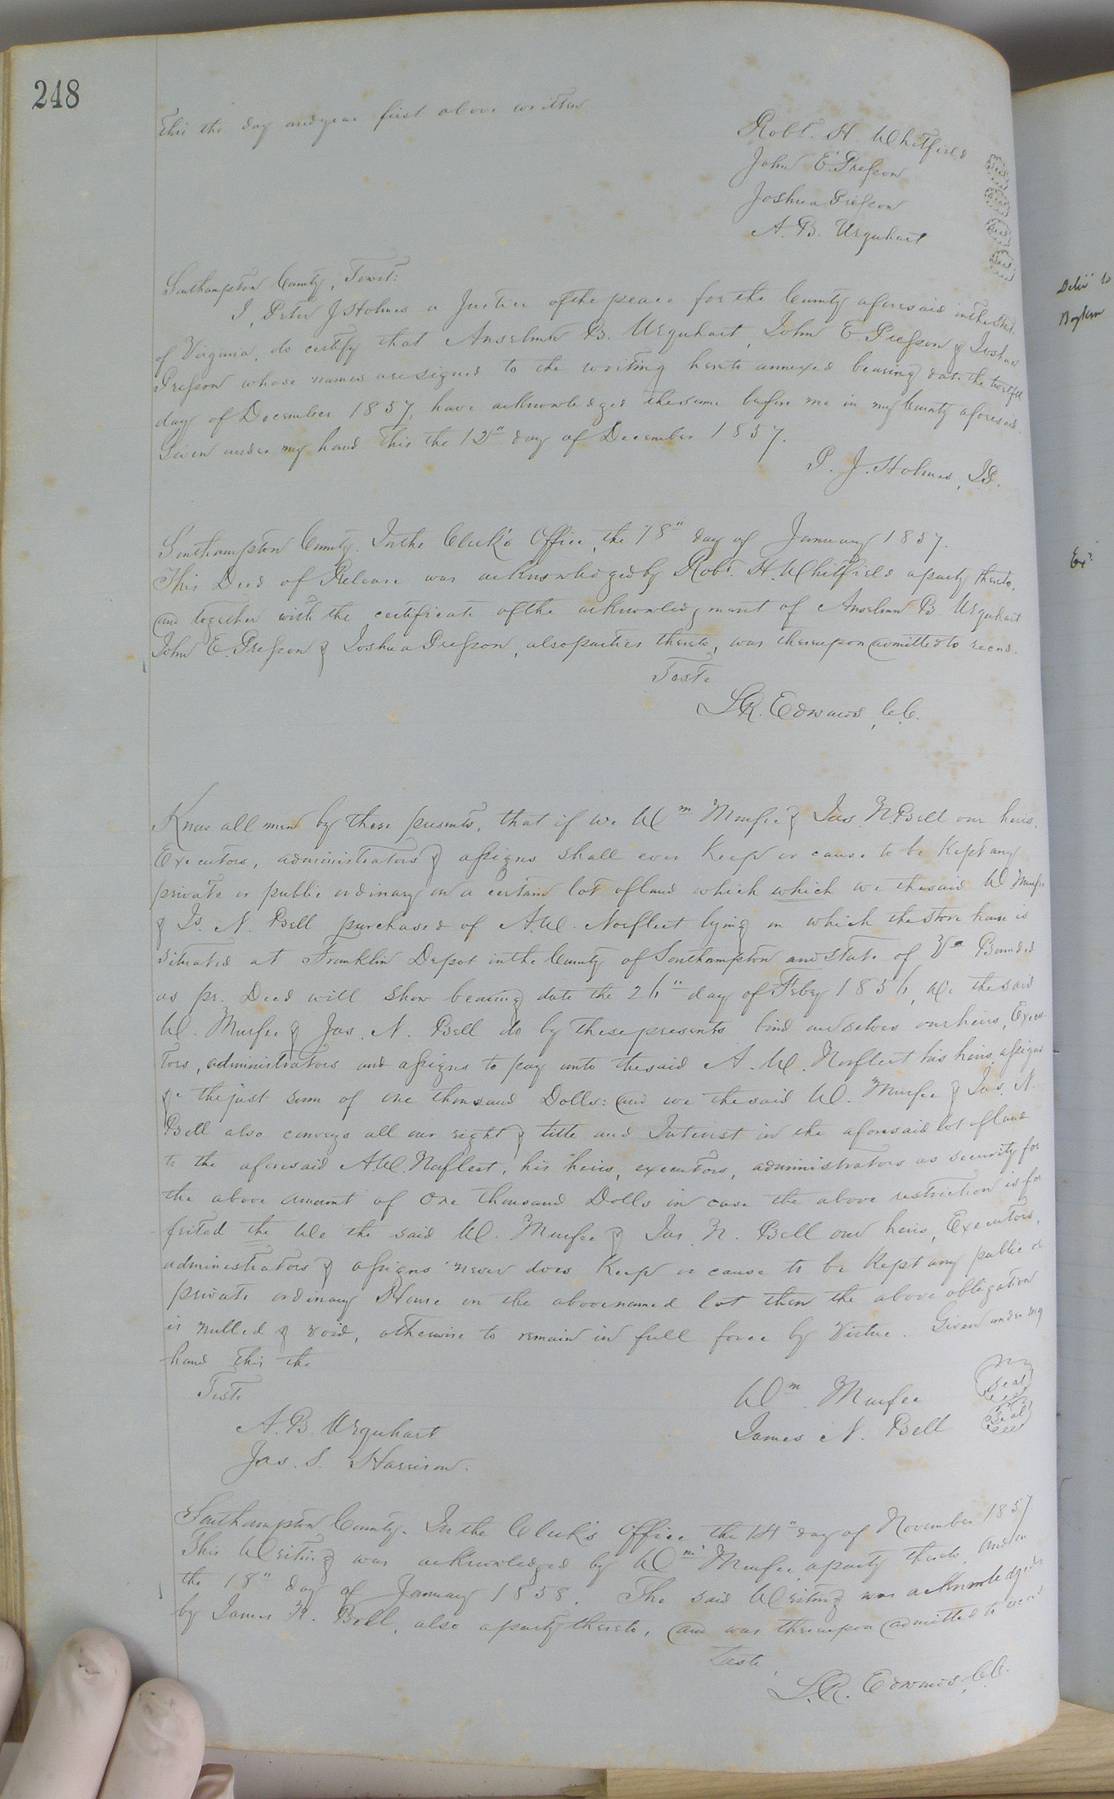 248
this the day and year first above written
Robt. H Whitfield Seal
John E. Presson Seal
Joshua Presson Seal
A. B. Urquhart Seal
Southampton County, Towit:
I, Peter J Holmes a Justice of the peace for the County aforesaid in the State
of Virginia, do certify that Anselmn B. Urquhart, John E Presson & Joshua
Presson whose names are signed to the writing hereto annexed bearing date the twelfth
day of December 1857, have acknowledged the same before me in my County aforesaid.
Given under my hand this the 12th day of December 1857.
P. J. Holmes, J.P.
Southampton County. In the Clerk's Office, the 18" day of January 1857.
This Deed of Release was acknowledged by Robt. H. Whitfield a party thereto,
and together with the certificate of the acknowledgment of Anselmn B. Urquhart
John E. Presson & Joshua Presson, also parties thereto, was thereupon admitted to record.
Teste
L.R. Edwards, C.C.
Know all men by these presents, that if we Wm Murfee & Jas. N. Bell our heirs,
Executors, administrators & assigns shall ever keep or cause to be kept any
private or public ordinary on a certain lot of land which which we the said W Murfee
& Js. N. Bell purchased of A.W. Norfleet lying on which the store house is
situated at Franklin Depot in the County of Southampton and State of Va Bounded
as pr. Deed will show bearing date the 26" day of Feby 1856, We the said
W. Murfee & Jas. N. Bell do by these presents bind ourselves our heirs, Execu-
tors, administrators and assigns to pay unto the said A. W. Norfleet his heirs, assigns
&c the just sum of one thousand Dolls: and we the said W. Murfee & Jas. N.
Bell also conveys all our right & title and Interest in the aforesaid lot of land
to the aforesaid A.W. Norfleet, his heirs, executors, administrators as security for
the above amount of one thousand Dolls in case the above restriction is for
feited the We the said W. Murfee & Jas. N. Bell our heirs, Executors,
administrators & assigns never does keep or cause to be kept any public or
private ordinary House on the above named lot then the above obligation
is nulled & void, otherwise to remain in full force by Virtue. Given under my
hand this the
Teste
Wm. Murfee Seal
A. B. Urquhart
James N. Bell Seal
Jas. S. Harrison.
Southampton County. In the Clerk's Office the 14" day of November 1857
This Writing was acknowledged by Wm Murfee a party thereto, and on
the 18" day of January 1858. The said Writing was acknowledged
by James N. Bell, also a party thereto, and was thereupon admitted to record
Teste,
L.R. Edwards, C.C.